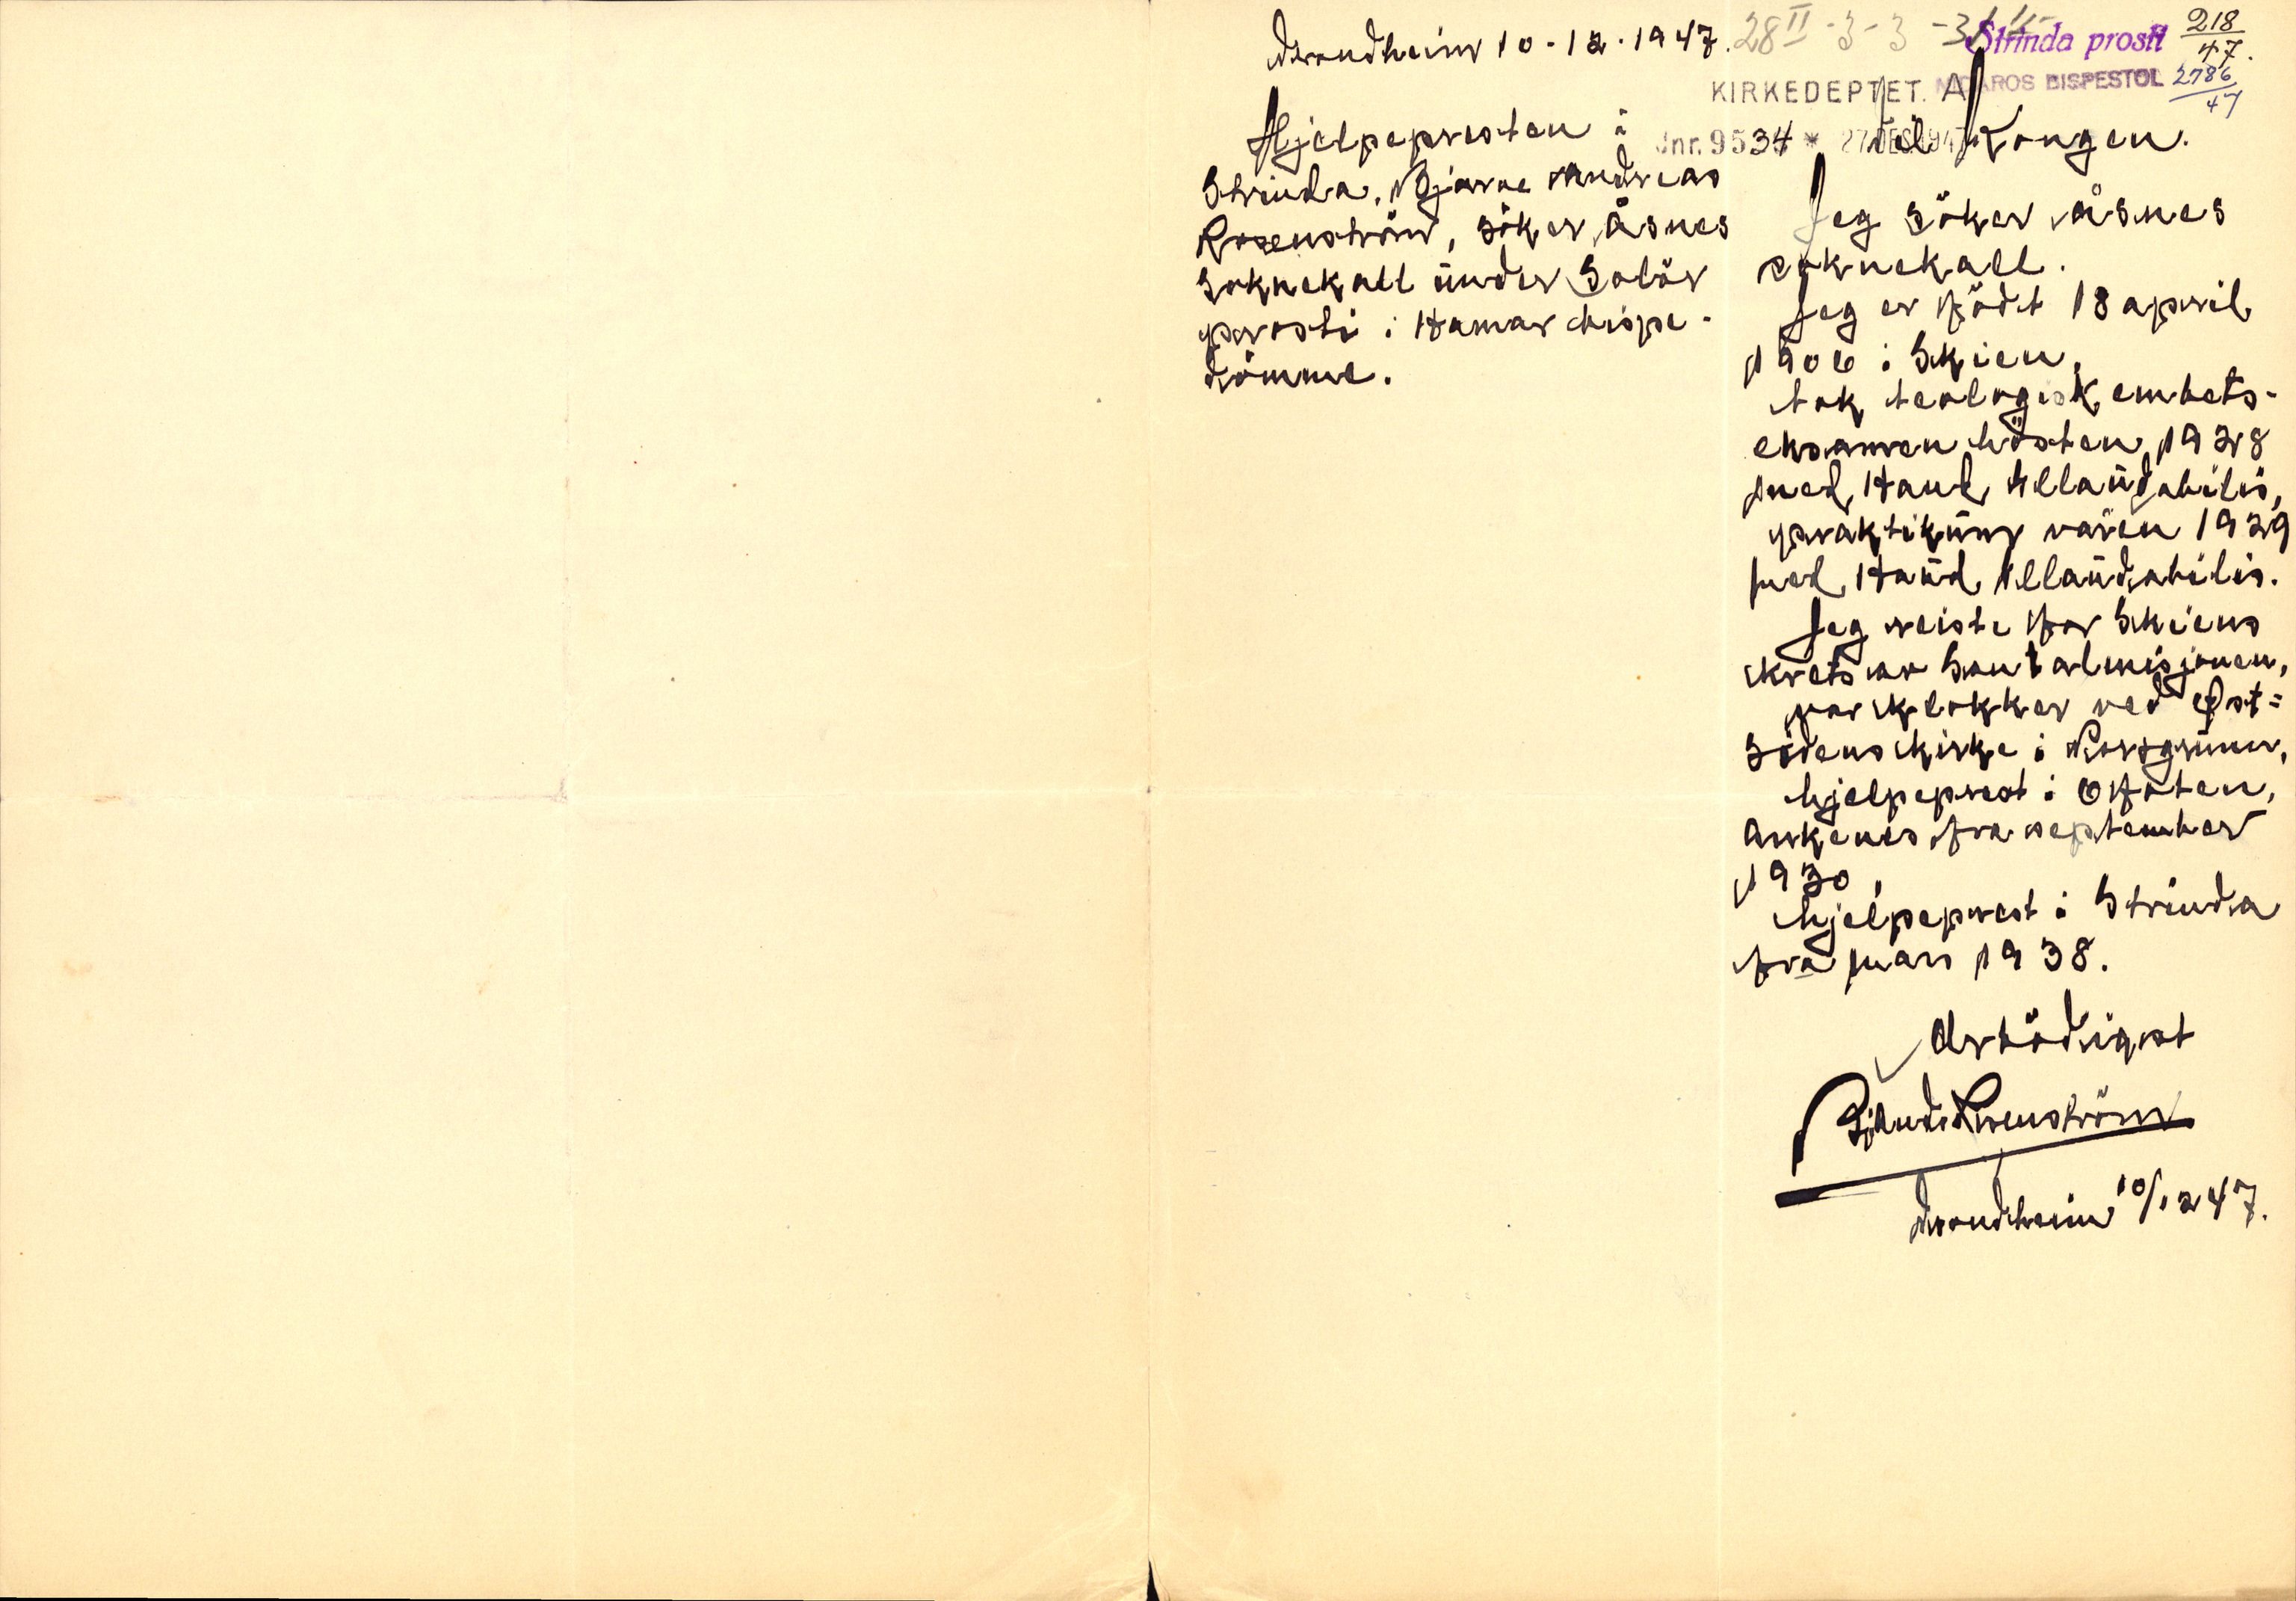 Trondheim 10-12-1947.
Hjelpepresten i
Strinda, Bjarne Andreas
Rosenström, söker Åsnes
soknekall under Solör
prosti i Hamar bispe-
dömme.
28 II - 3 - 3
Strinda prosti 218
47.
NIDAROS BISPESTOL 2786
47
KIRKEDEPTET. A
Jnr. 9534 * 27 DES. 1947
Til Kongen.
Jeg söker Åsnes
soknekall.
Jeg er födt 18 april
1906 i Skien,
tok teologisk embets-
eksamen hösten 1928
med Haud Illaudabilis,
praktikum våren 1929
med Haud Illaudabilis.
Jeg reiste for Skiens
krets av Santalmisjonen,
var klokker ved Øst=
sidens kirke i Porsgrunn,
hjelpeprest i Ofoten,
Ankenes fra september
1930,
hjelpeprest i Strinda
fra mars 1938.
Ærbödigst
Bj. Andr. Rosenström
Trondheim 10/12 47.